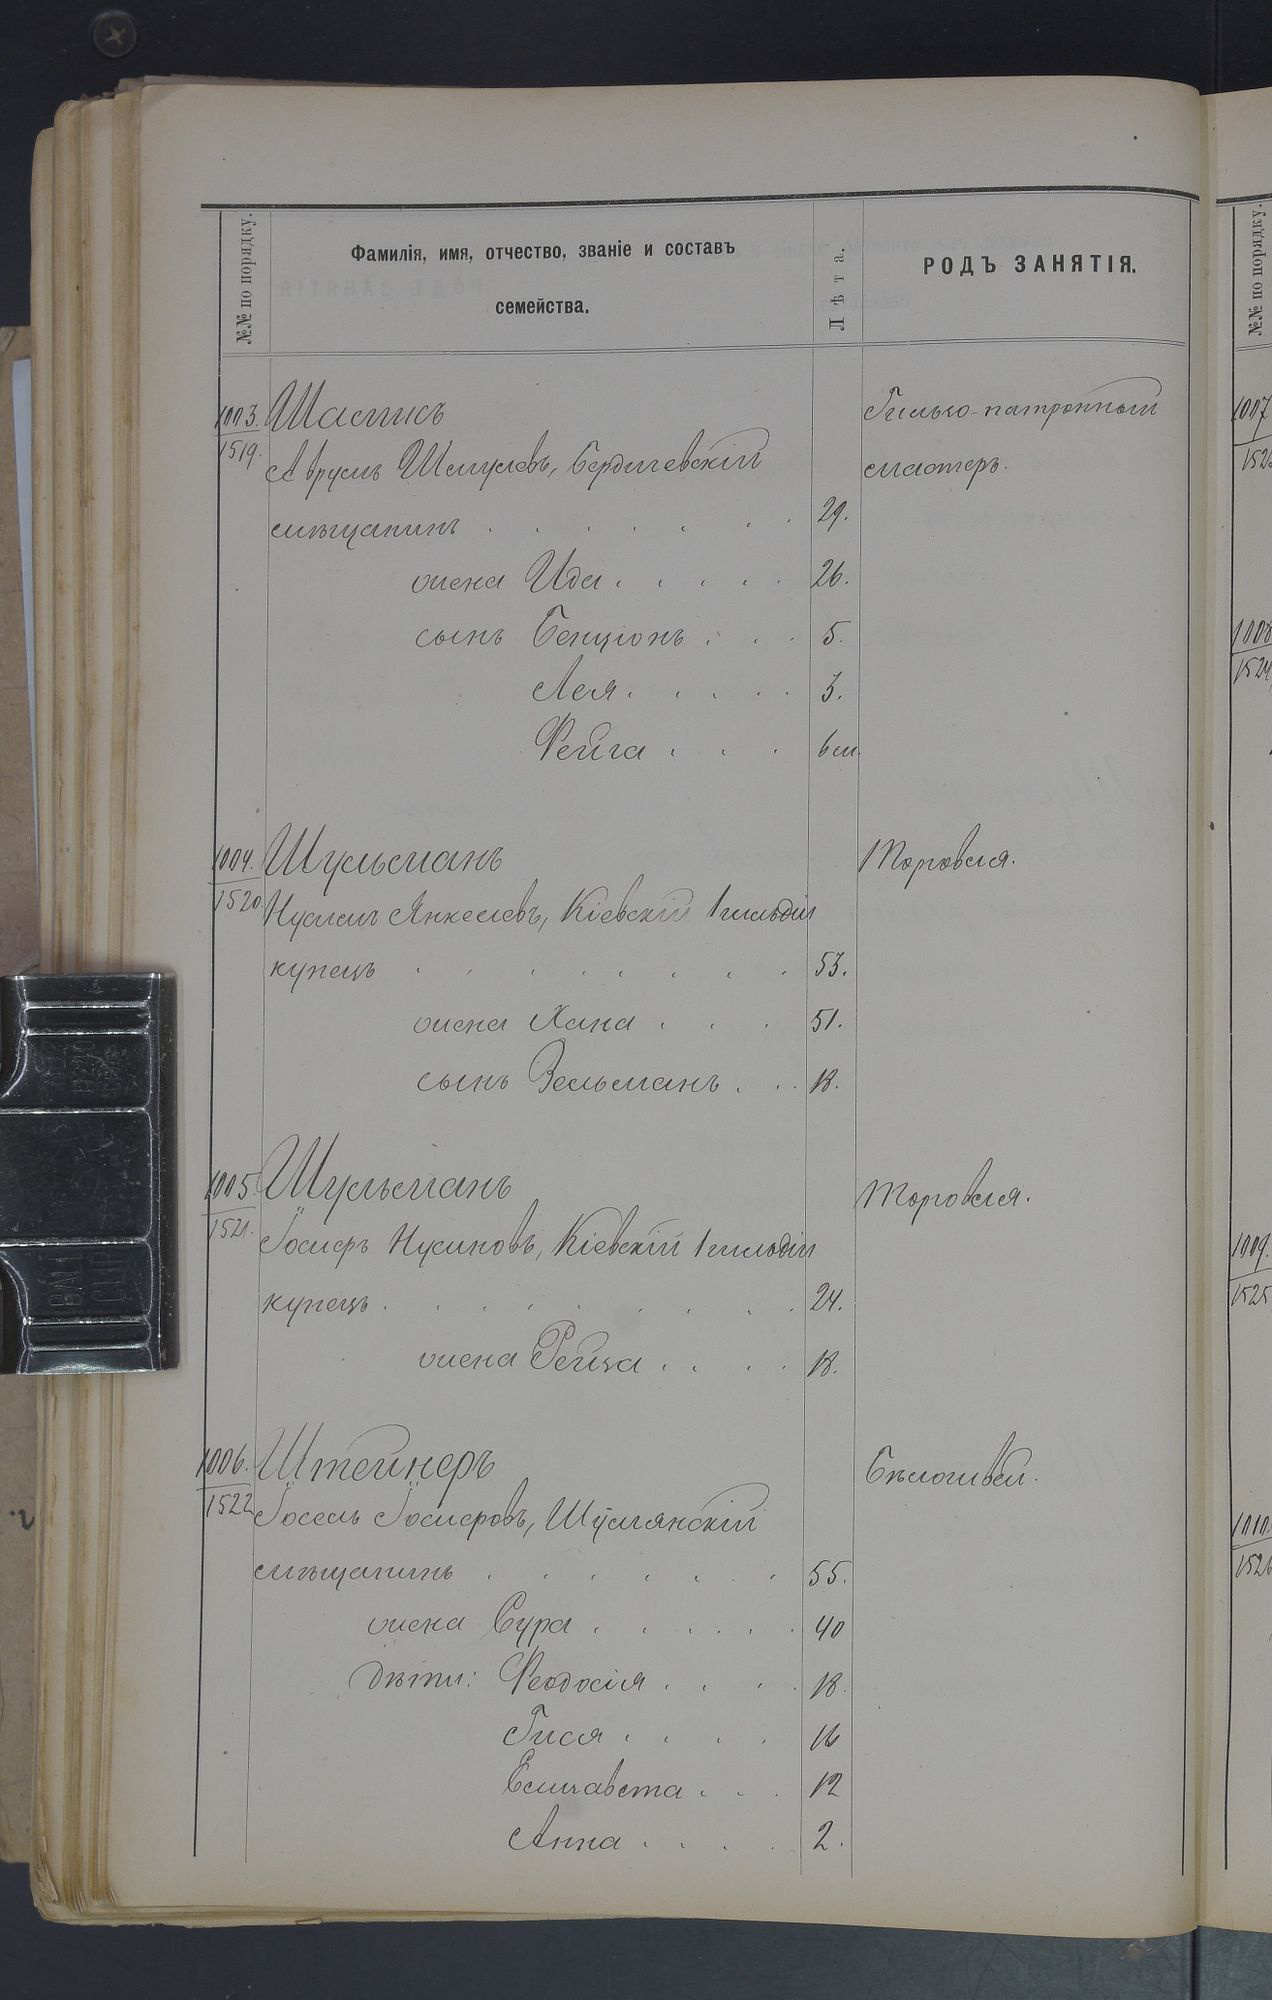 №№ по порядку.
Фамилія, имя, отчество, званіе и составъ
семейства.
Лѣта.
РОДЪ ЗАНЯТІЯ.
№№ по порядку.
1003. Шамисъ Гильзо-патронный
1519. Аврумъ Шмулевъ, Бердичевскій мастеръ.
мѣщанинъ . . . . . . . 29.
жена Ида . . . . . 26.
сынъ Бенціонъ . . . 5.
Лея . . . . . 3.
Фейга . . . 6 м.
1004. Шульманъ Торговля.
1520 Нусимъ Янкелевъ, Кіевскій 1 гильдіи
купецъ . . . . . . . . 53.
жена Хана . . . 51.
сынъ Зельманъ . . . 18.
1005. Шульманъ Торговля.
1521. Іосифъ Нусиновъ, Кіевскій 1 гильдіи
купецъ . . . . . . . . . 24.
жена Рейза . . . . 18.
1006. Штейнеръ Бѣлошвея.
1522 Іосель Іосифовъ, Шумлянскій
мѣщанинъ . . . . . . . 55.
жена Сура . . . . . . 40
дѣти: Феодосія . . . . 18.
Гися . . . . 16
Елизавета . . . 12
Анна . . . . 2.
1007.
1008
1524
1009.
1525
1010.
1526